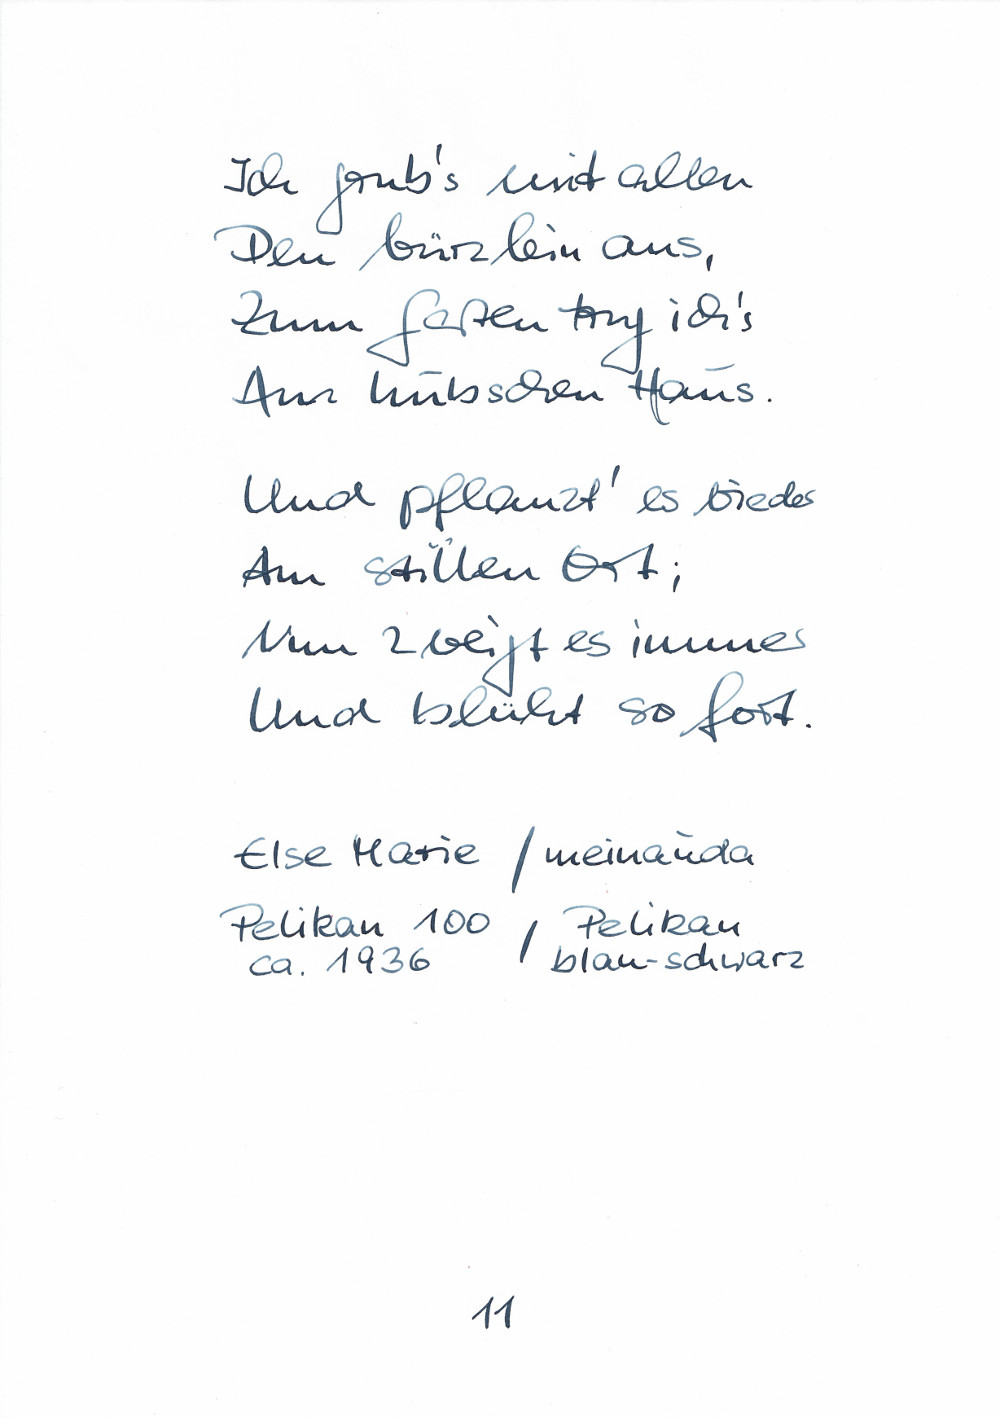 Ich grub's mit allen
Den bürzlein aus,
Zum garten trug ich's
Am hübschen Haus.
Und pflanzt' es wieder
Am stillen Ort;
Nun zweigt es immer
Und blüht so fort.
Else Marie / meinauda
Pelikan 100 / Pelikan
ca. 1936 blau-schwarz
11